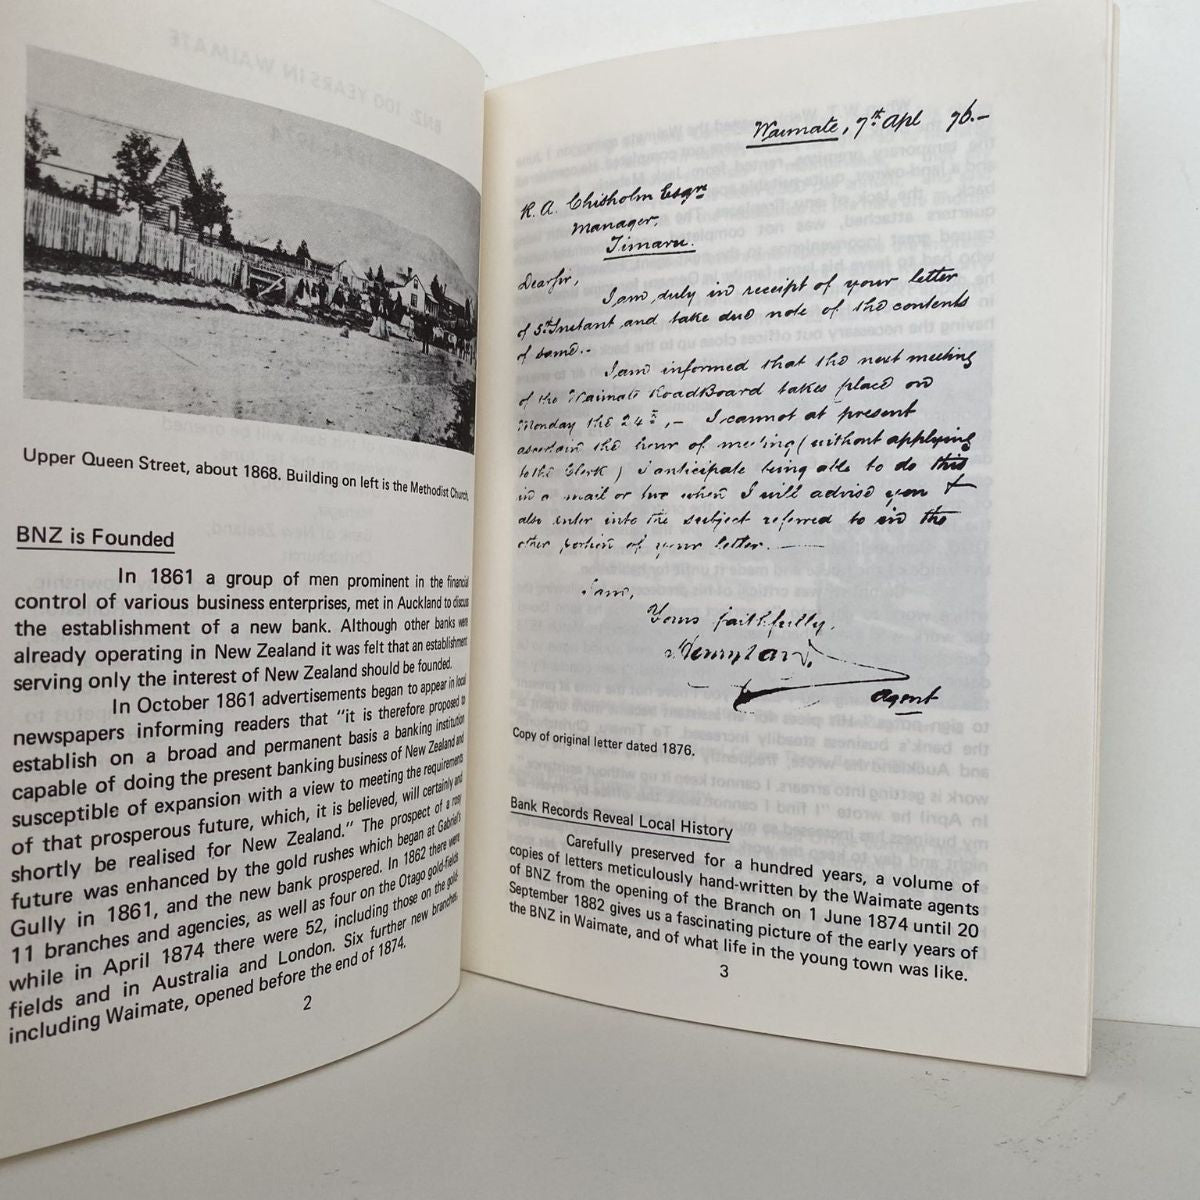 Upper Queen Street, about 1868. Building on left is the Methodist Church.
BNZ is Founded
In 1861 a group of men prominent in the financial
control of various business enterprises, met in Auckland to discuss
the establishment of a new bank. Although other banks were
already operating in New Zealand it was felt that an establishment
serving only the interest of New Zealand should be founded.
In October 1861 advertisements began to appear in local
newspapers informing readers that "it is therefore proposed to
establish on a broad and permanent basis a banking institution
capable of doing the present banking business of New Zealand and
susceptible of expansion with a view to meeting the requirements
of that prosperous future, which, it is believed, will certainly and
shortly be realised for New Zealand." The prospect of a rosy
future was enhanced by the gold rushes which began at Gabriel's
Gully in 1861, and the new bank prospered. In 1862 there were
11 branches and agencies, as well as four on the Otago gold-fields
while in April 1874 there were 52, including those on the gold-
fields and in Australia and London. Six further new branches,
including Waimate, opened before the end of 1874.
2
Waimate, 7th Apl 76.-
R. A. Chisholm Esqre
Manager,
Timaru.
Dear Sir,
I am duly in receipt of your letter
of 5th Instant and take due note of the contents
of same.-
I am informed that the next meeting
of the Waimate Road Board takes place on
Monday the 24th,- I cannot at present
ascertain the hour of meeting (without applying
to the Clerk) I anticipate being able to do this
in a mail or two when I will advise you &
also enter into the subject referred to in the
other portion of your letter.—
I am,
Yours faithfully,
Agent
Copy of original letter dated 1876.
Bank Records Reveal Local History
Carefully preserved for a hundred years, a volume of
copies of letters meticulously hand-written by the Waimate agents
of BNZ from the opening of the Branch on 1 June 1874 until 20
September 1882 gives us a fascinating picture of the early years of
the BNZ in Waimate, and of what life in the young town was like.
3